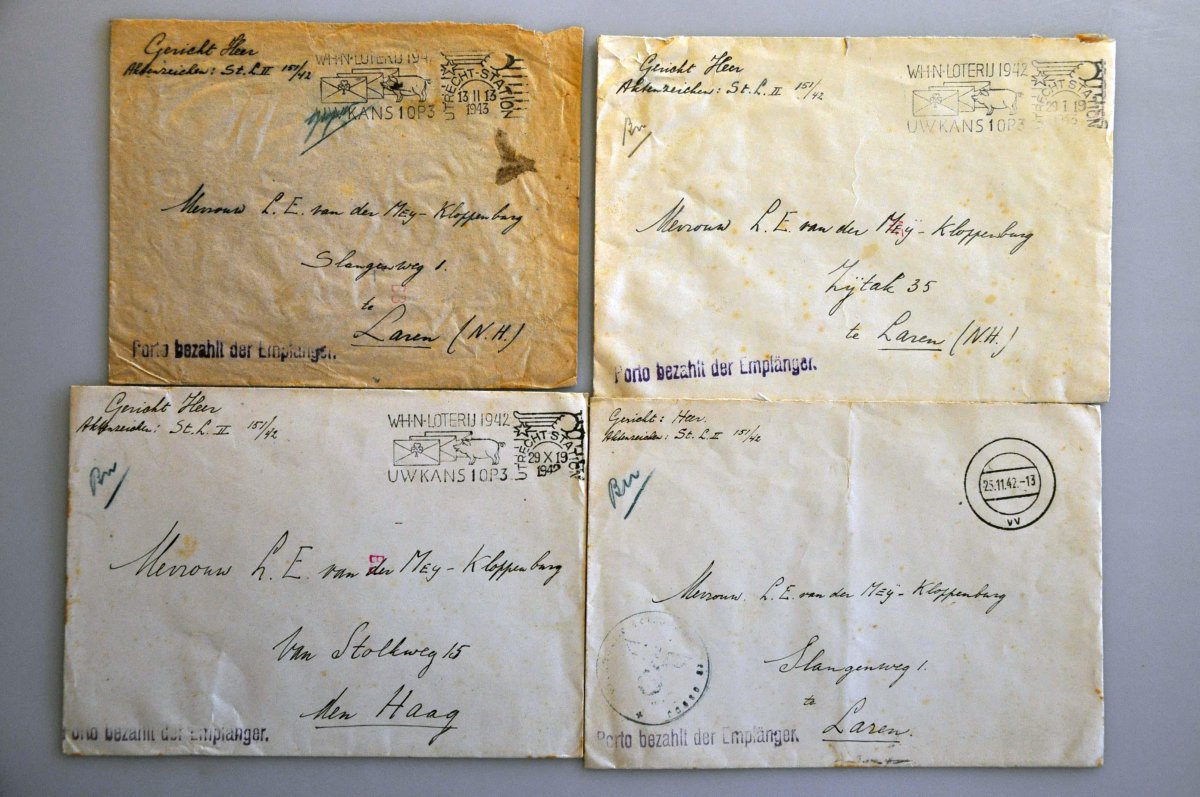 Gericht Heer
Aktenzeichen: St. L. II 151/42
WHN-LOTERIJ 194
UTRECHT-STATION
13 II 13
1943
KANS 1 OP 3
Mevrouw L. E. van der Mey-Kloppenburg
Slangenweg 1.
te
Laren (N.H.)
Porto bezahlt der Empfänger.
Gericht Heer
Aktenzeichen: St. L. II 151/42
WHN-LOTERIJ 1942
UTRECHT STATION
UW KANS 1 OP 3
Bw
Mevrouw L. E. van der Meÿ-Kloppenburg
Zijtak 35
te Laren (N.H.)
Porto bezahlt der Empfänger.
Gericht Heer
Aktenzeichen: St. L. II 151/42
WHN-LOTERIJ 1942
UTRECHT STATION
29 X 19
1942
UW KANS 1 OP 3
Bw
Mevrouw L. E. van der Mey-Kloppenburg
van Stolkweg 15
den Haag
Porto bezahlt der Empfänger.
Gericht: Heer.
Aktenzeichen: St. L. II 151/42
Bw
25.11.42.-13
VV
Mevrouw L. E. van der Meÿ-Kloppenburg
Slangenweg 1.
te
Laren.
Porto bezahlt der Empfänger.